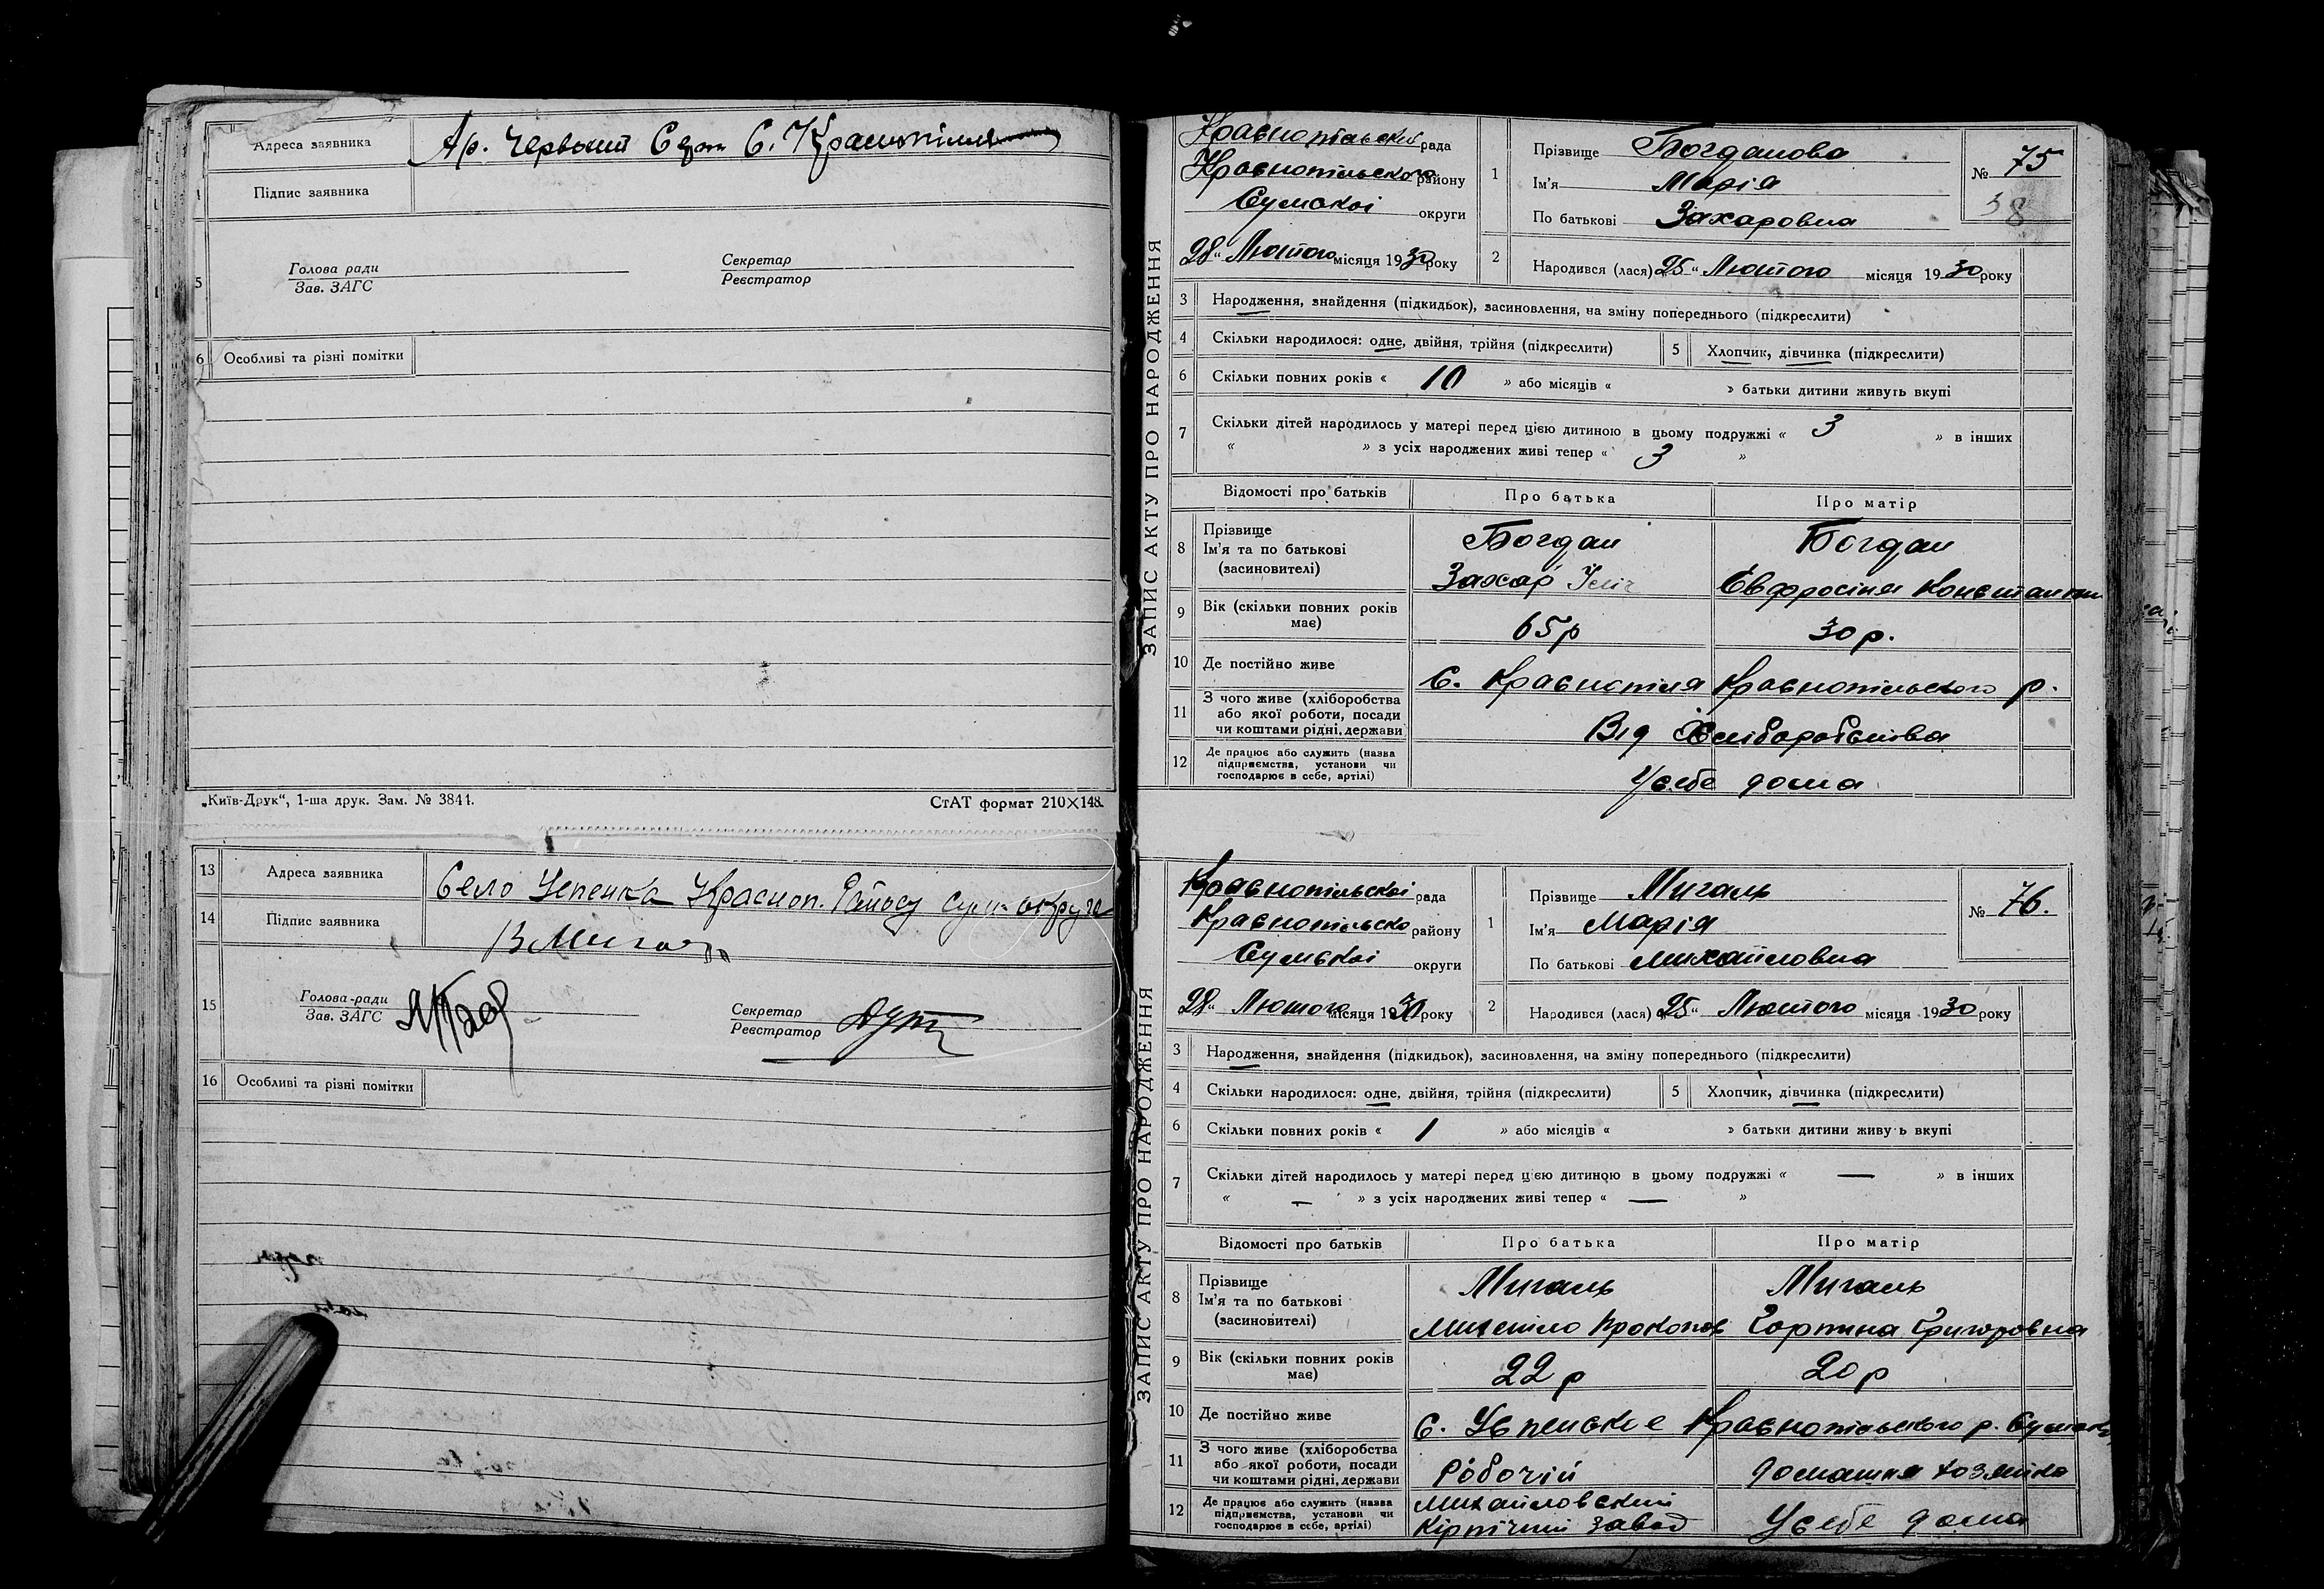 Адреса заявника
Ар. Червоний С. Краснопілля
Підпис заявника
Голова ради
Зав. ЗАГС
Секретар
Реєстратор
5
6 Особливі та різні помітки
„Київ-Друк“, 1-ша друк. Зам. № 3841.
СтАТ формат 210×148.
13 Адреса заявника
Село Успенка Красноп. Району Сум. округи
14 Підпис заявника
15 Голова ради
Зав. ЗАГС
Секретар
Реєстратор
16 Особливі та різні помітки
ЗАПИС АКТУ ПРО НАРОДЖЕННЯ
Краснопільської рада
Краснопільского району
Сумскої округи
28 „ Лютого місяця 1930 року
1 Прізвище Богданова
Ім'я Марія
По батькові Захаровна
№ 75
38
2 Народився (лася) „25“ Лютого місяця 1930 року
3 Народження, знайдення (підкидьок), засиновлення, на зміну попереднього (підкреслити)
4 Скільки народилося: одне, двійня, трійня (підкреслити)
5 Хлопчик, дівчинка (підкреслити)
6 Скільки повних років « 10 » або місяців « » батьки дитини живуть вкупі
7 Скільки дітей народилось у матері перед цією дитиною в цьому подружжі « 3 » в інших
« » з усіх народжених живі тепер « 3 »
Відомості про батьків
Про батька
Про матір
8 Прізвище
Ім'я та по батькові
(засиновителі)
Богдан
Захар
Богдан
Евфросіня Константин
9 Вік (скільки повних років
має)
65р
30р.
10 Де постійно живе
С. Краснопіля Краснопільского р.
11 З чого живе (хліборобства
або якої роботи, посади
чи коштами рідні, держави
Від Хліборобства
12 Де працює або служить (назва
підприємства, установи чи
господарює в себе, артілі)
Усебе дома
ЗАПИС АКТУ ПРО НАРОДЖЕННЯ
Краснопільскої рада
Краснопільско району
Сумскої округи
28 „ Лютого місяця 1930 року
1 Прізвище Мигаль
Ім'я Марія
По батькові Михайловна
№ 76.
2 Народився (лася) „25“ Лютого місяця 1930 року
3 Народження, знайдення (підкидьок), засиновлення, на зміну попереднього (підкреслити)
4 Скільки народилося: одне, двійня, трійня (підкреслити)
5 Хлопчик, дівчинка (підкреслити)
6 Скільки повних років « 1 » або місяців « » батьки дитини живу ь вкупі
7 Скільки дітей народилось у матері перед цією дитиною в цьому подружжі « — » в інших
« — » з усіх народжених живі тепер « — »
Відомості про батьків
Про батька
Про матір
8 Прізвище
Ім'я та по батькові
(засиновителі)
Мигаль
Михайло Прокопов
Мигаль
Горпина Григоровна
9 Вік (скільки повних років
має)
22р
20р
10 Де постійно живе
с. Успенское Краснопільского р. Сумско
11 З чого живе (хліборобства
або якої роботи, посади
чи коштами рідні, держави
Робочій
домашня хозяйка
12 Де працює або служить (назва
підприємства, установи чи
господарює в себе, артілі)
Михайловский
Кірпічний завод
Усебе дома